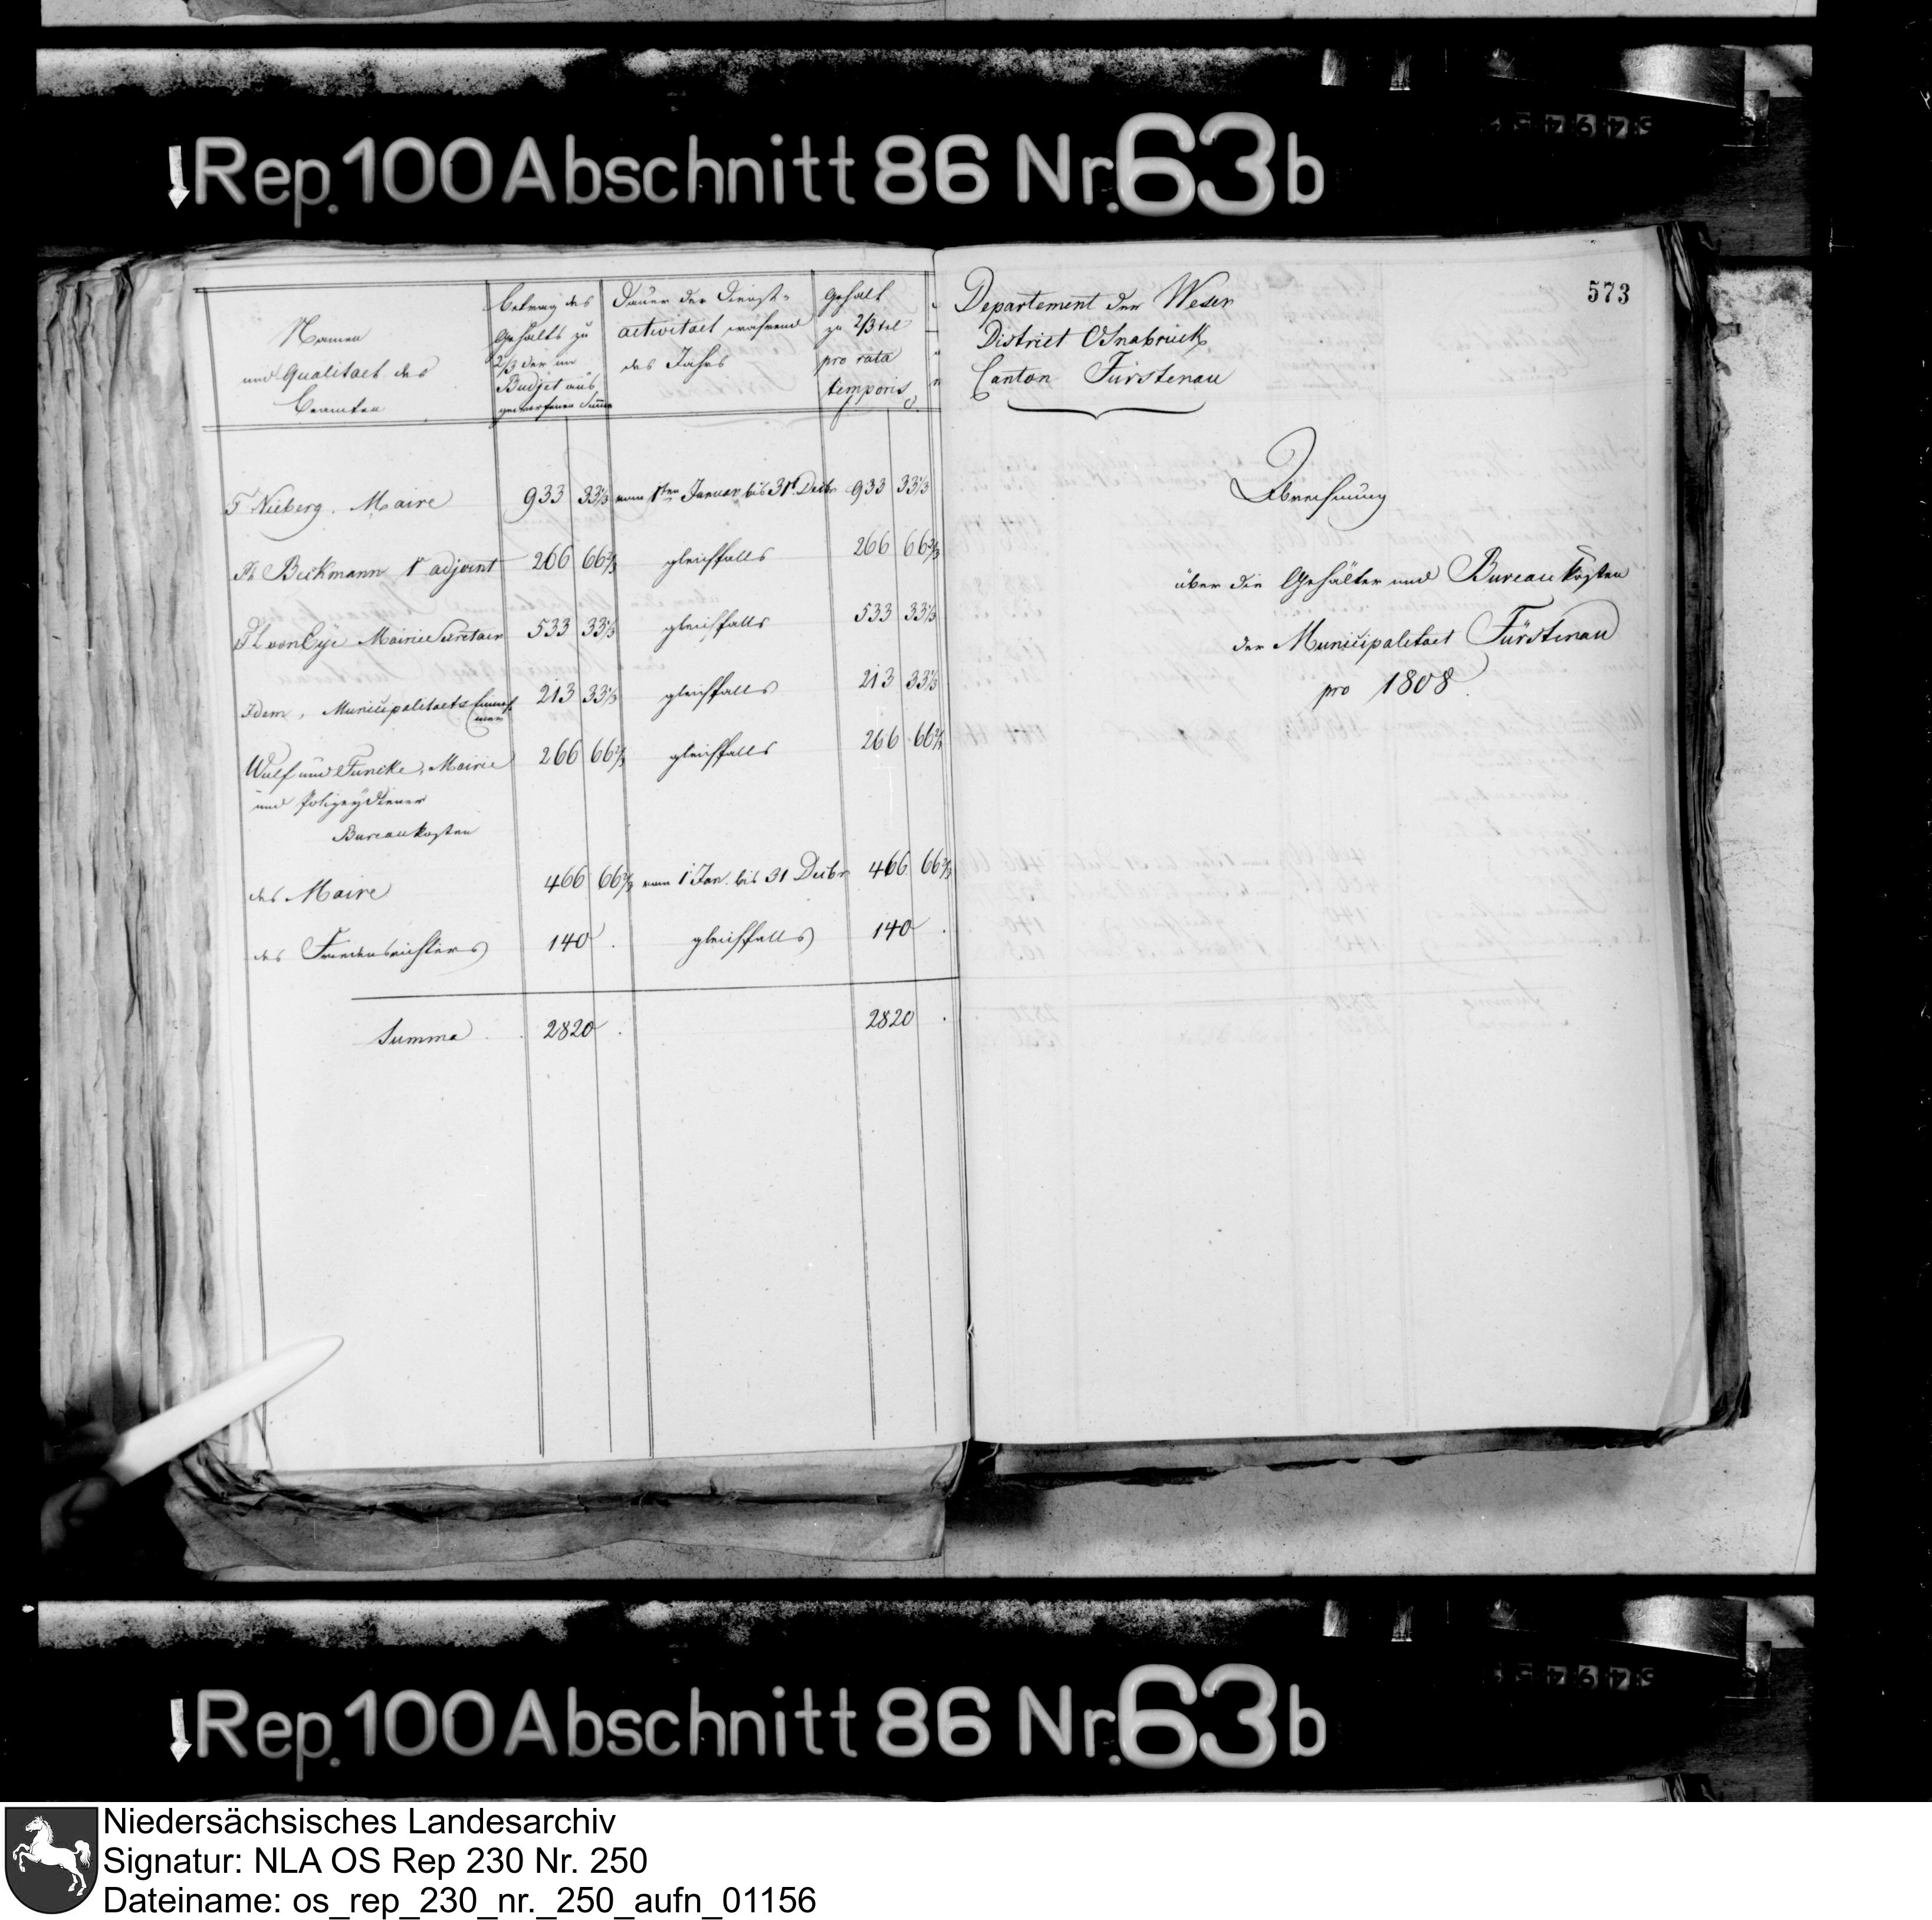 Rep. 100 Abschnitt 86 Nr. 63 b
Namen
und Qualitaet des
Beamten
Betrag des
Gehalts zu
2/3 der im
Budjet aus
geworfenen Summe
Dauer der Dienst-
activitaet während
des Jahrs
Gehalt
zu 2/3 tel
pro rata
temporis
Nieberg. Maire 933 33 1/3 vom 1ten Januar bis 31t Decbr 933 33 1/3
Beckmann 1r adjoint 266 66 2/3 gleichfalls 266 66 2/3
von Eye Mairie Secretair 533 33 1/3 gleichfalls 533 33 1/3
Idem, Municipalitaets Einneh
mer 213 33 1/3 gleichfalls 213 33 1/3
Wulf und Funcke, Mairie 266 66 2/3 gleichfalls 266 66 2/3
und Polizeydiener
Bureaukosten
des Maire 466 66 2/3 vom 1 Jan. bis 31 Decbr 466 66 2/3
des Friedensrichters 140 . gleichfalls 140 .
Summa . 2820 . 2820 .
573
Departement der Weser
District Osnabrück
Canton Fürstenau
Abrechnung
über die Gehälter und Bureaukosten
der Municipalitaet Fürstenau
pro 1808.
Rep. 100 Abschnitt 86 Nr. 63 b
Niedersächsisches Landesarchiv
Signatur: NLA OS Rep 230 Nr. 250
Dateiname: os_rep_230_nr._250_aufn_01156